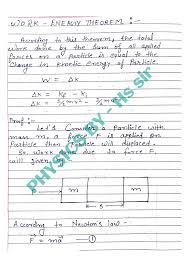 WORK - ENERGY THEOREM :-
According to this theorem, the total
work done by the sum of all applied
forces on a particle is equal to the
change in kinetic energy of Particle.
W = Δk
Δk = ½mv² - ½mu²
Proof :-
Let's Consider a Particle with
mass m, a force F is applied on
Particle then Particle will displaced.
So work done due to force F
will given
m
s
m
According to Newton's law -
F = ma — ①
PHYSICS BY - HS Sir